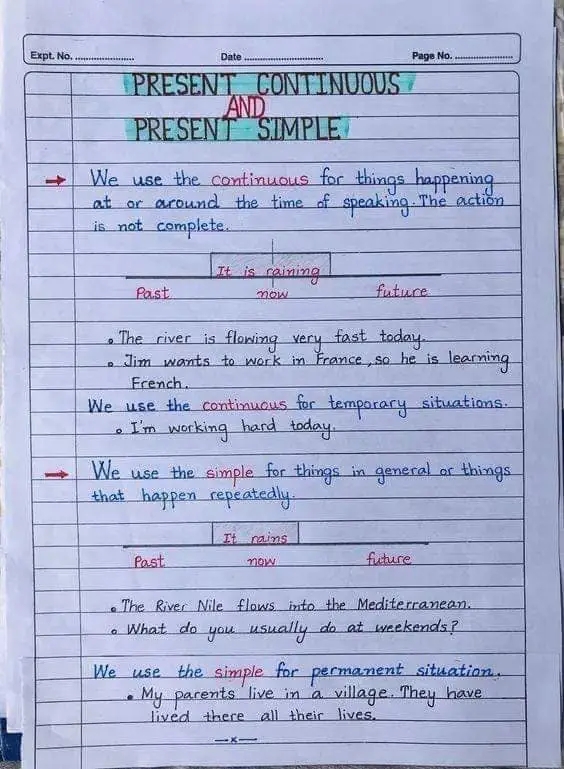 Expt. No. ......................
Date ............................
Page No. .....................
PRESENT CONTINUOUS
AND
PRESENT SIMPLE
→ We use the continuous for things happening
at or around the time of speaking. The action
is not complete.
It is raining
Past now future
• The river is flowing very fast today.
• Jim wants to work in France, so he is learning
French.
We use the continuous for temporary situations.
• I'm working hard today.
→ We use the simple for things in general or things
that happen repeatedly.
It rains
Past now future
• The River Nile flows into the Mediterranean.
• What do you usually do at weekends?
We use the simple for permanent situation.
• My parents live in a village. They have
lived there all their lives.
—x—